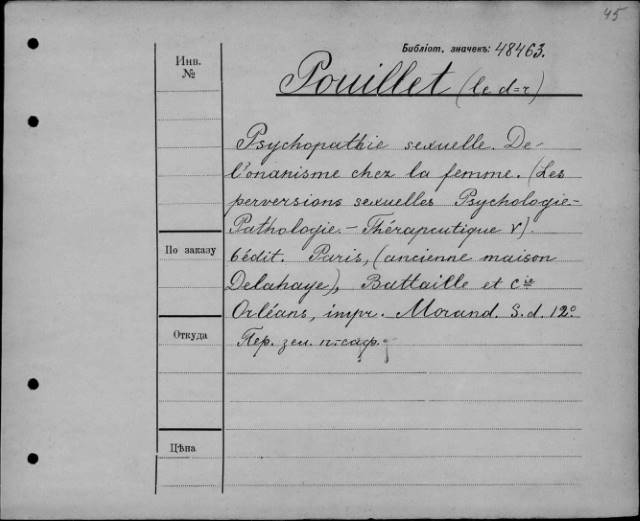 45
Библіот. значекъ: 48463.
Инв. №
Pouillet (le d=r)
Psychopathie sexuelle. De
l'onanisme chez la femme. (Les
perversions sexuelles Psychologie-
Pathologie.- Thérapeutique V).
По заказу
6édit. Paris, (ancienne maison
Delahaye), Battaille et Cie
Orléans, impr. Morand. S.d. 12º
Откуда
Пер. зел. п-саф.
Цѣна